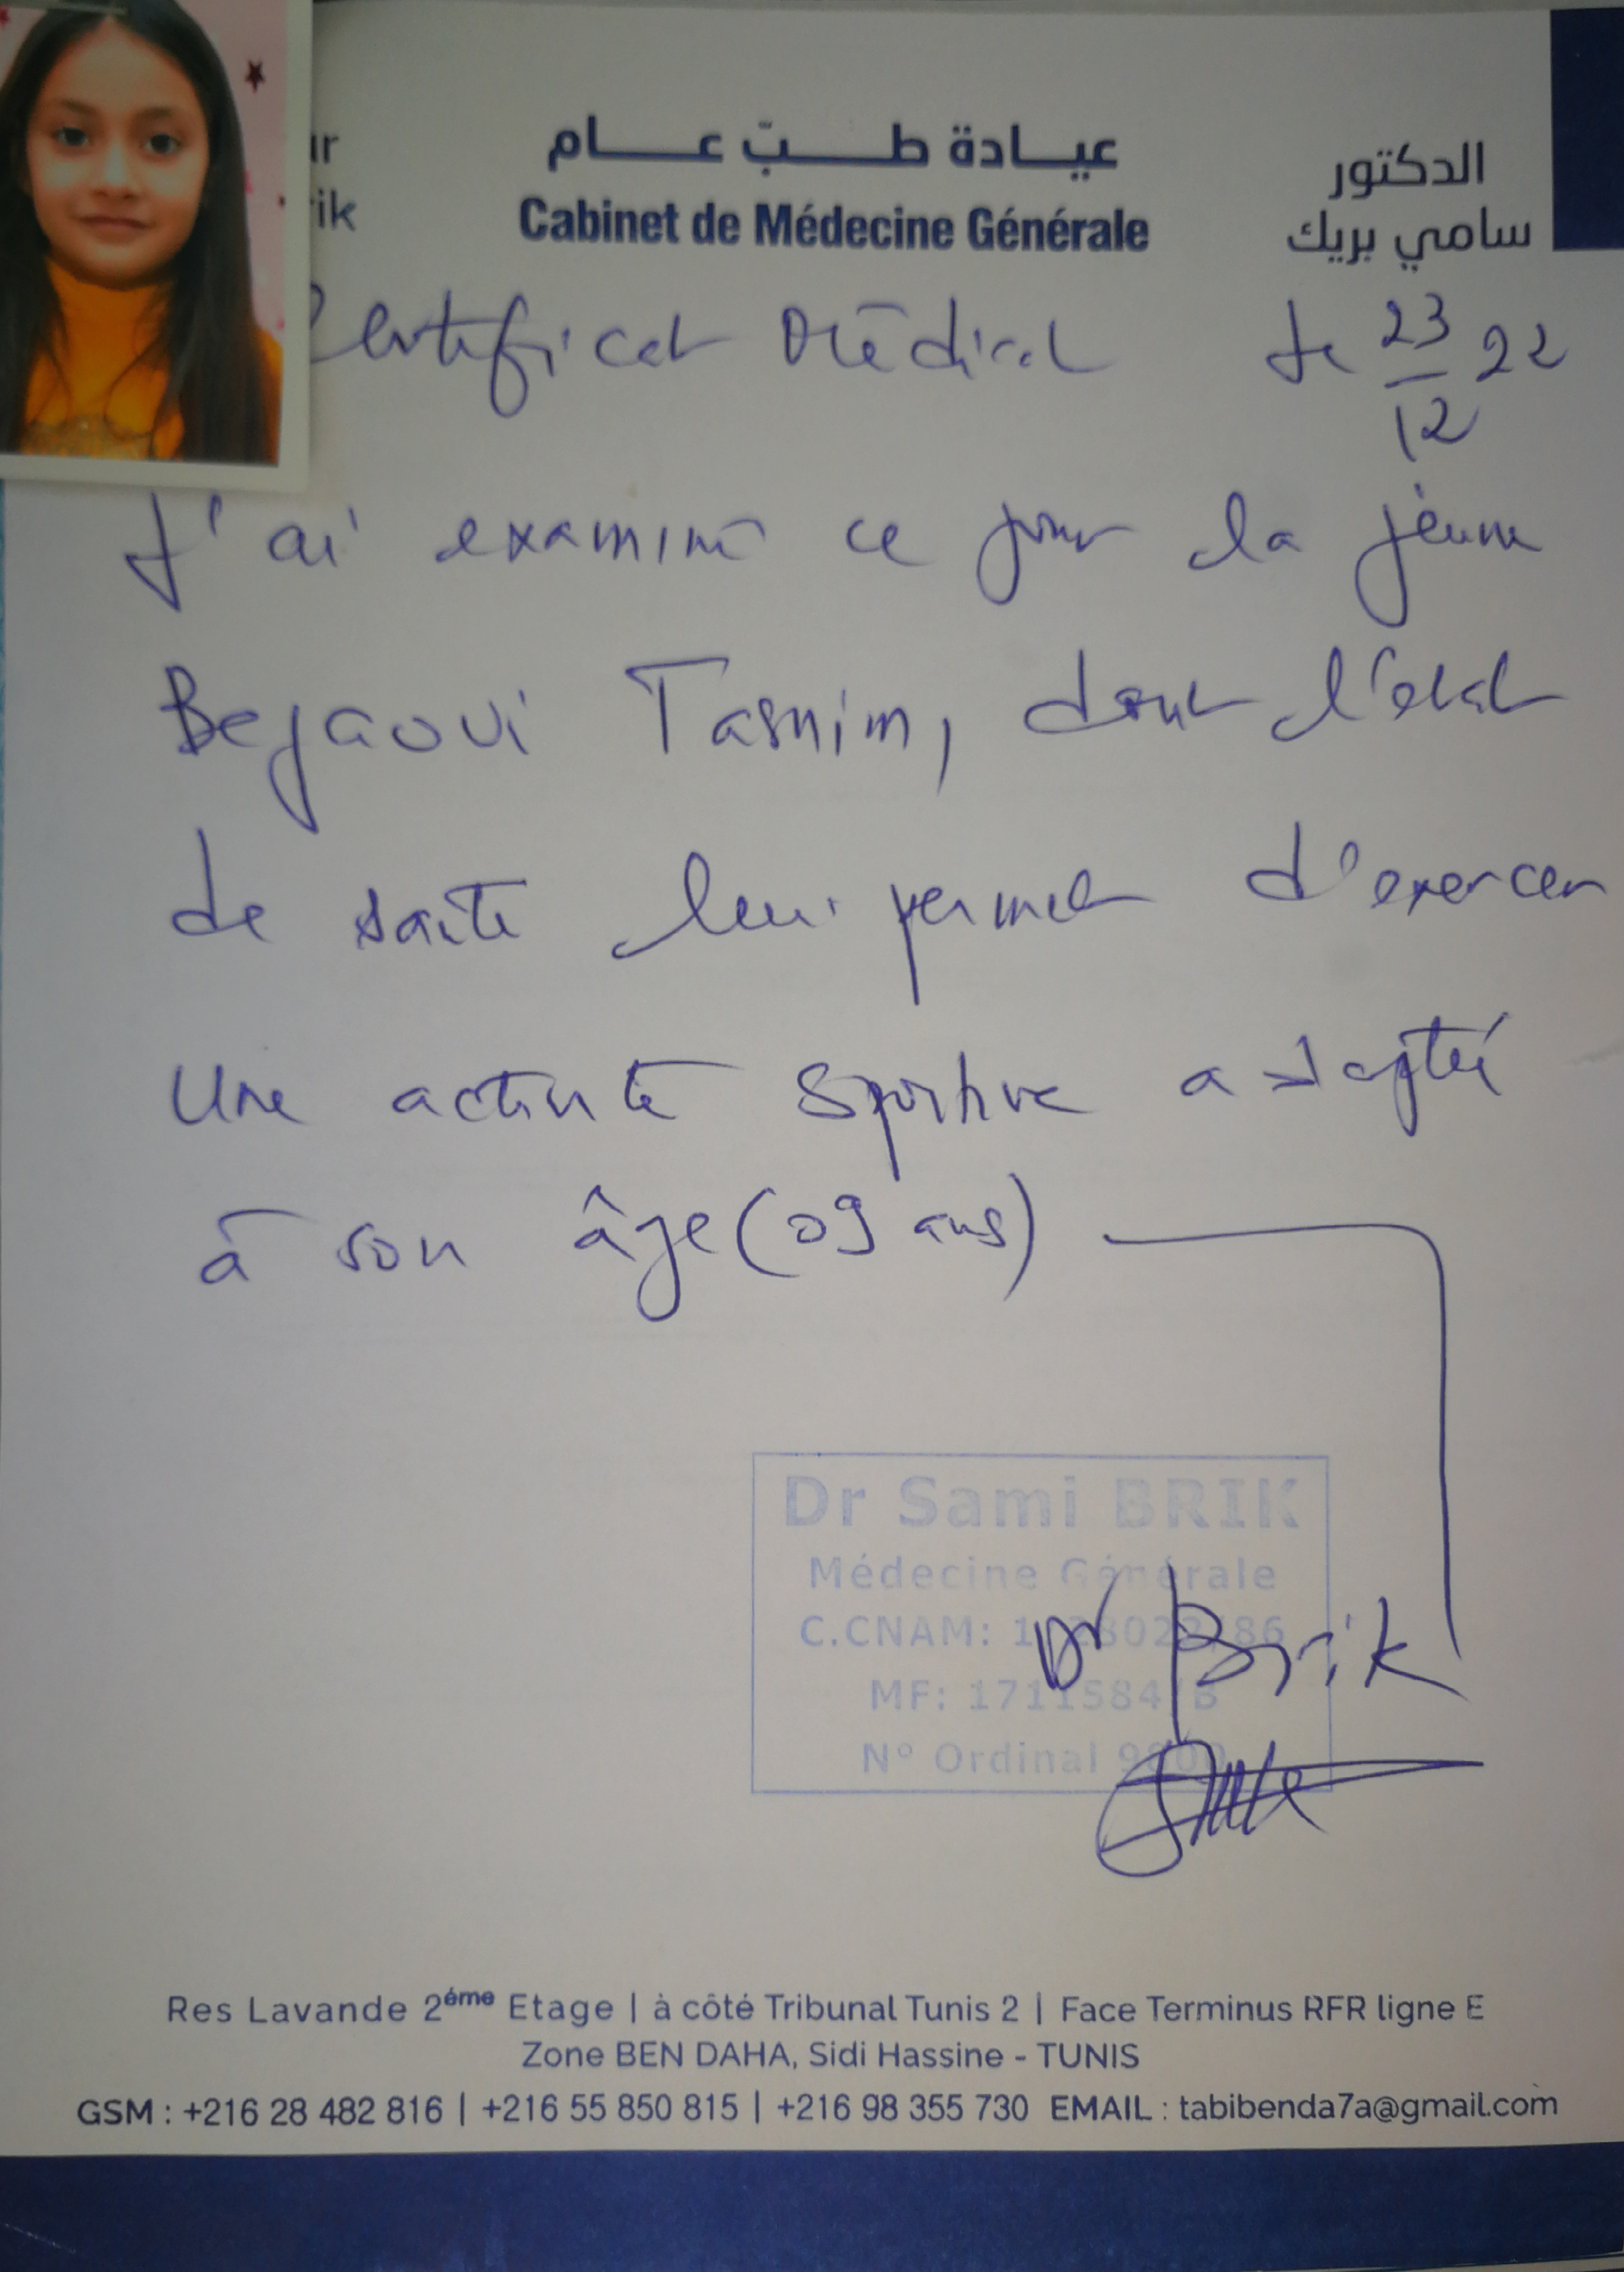 ur
rik
عيادة طب عام
Cabinet de Médecine Générale
الدكتور
سامي بريك
Certificat Médical le 23/12 22
J'ai examiné ce jour la jeune
Bejaoui Tasnim, dont l'état
de santé lui permet d'exercer
Une activité sportive adaptée
à son âge (09 ans)
Dr Sami BRIK
Médecine Générale
C.CNAM:
MF:
N° Ordinal
Dr Brik
Res Lavande 2éme Etage | à côté Tribunal Tunis 2 | Face Terminus RFR ligne E
Zone BEN DAHA, Sidi Hassine - TUNIS
GSM : +216 28 482 816 | +216 55 850 815 | +216 98 355 730 EMAIL : tabibenda7a@gmail.com